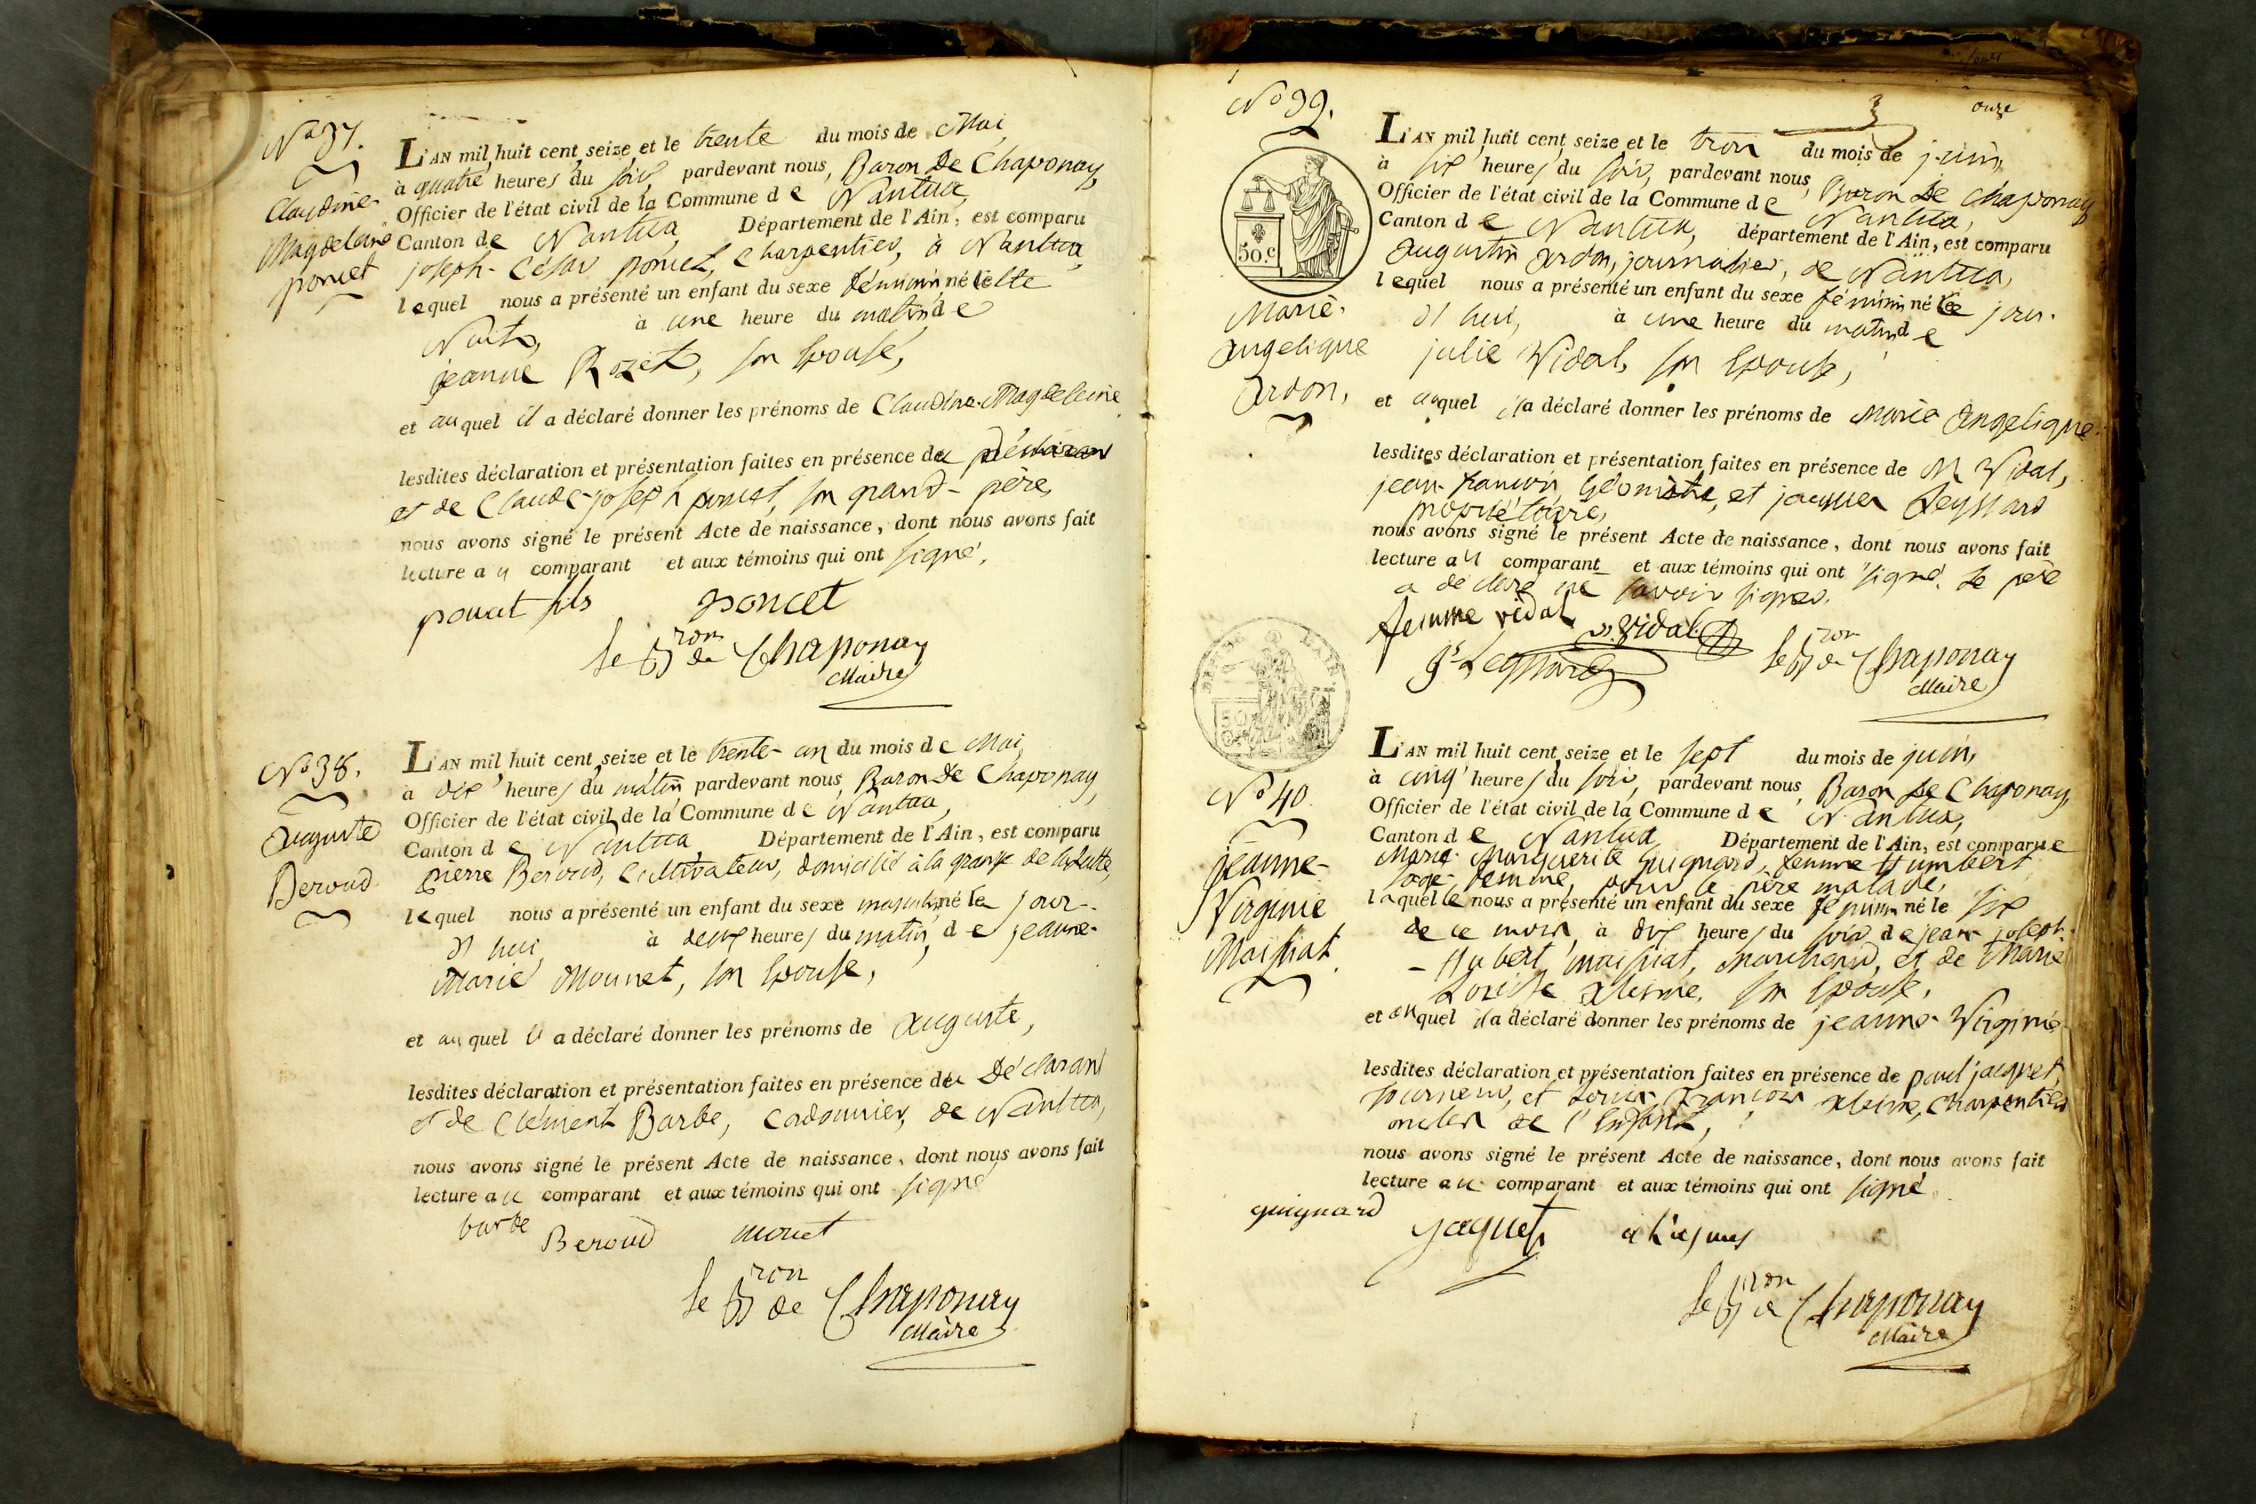 No 37.
Claudine-
Magdelaine
poncet
L'AN mil huit cent seize et le trente du mois de Mai,
à quatre heures du soir, pardevant nous, Baron De Chaponay,
Officier de l'état civil de la Commune de Nantua,
Canton de Nantua Département de l'Ain, est comparu
joseph-César poncet, charpentier, à Nantua,
lequel nous a présenté un enfant du sexe féminin, né cette
Nuit, à une heure du matin, de
jeanne Rozet, son Epouse,
et auquel il a déclaré donner les prénoms de Claudine-Magdeleine
lesdites déclaration et présentation faites en présence du déclarant
et de Claude-joseph poncet, son grand-père,
nous avons signé le présent Acte de naissance, dont nous avons fait
lecture au comparant et aux témoins qui ont signé.
poncet fils poncet
le Bron de Chaponay
Maire
No 38.
Auguste
Beroud
L'AN mil huit cent seize et le trente-un du mois de Mai,
à dix heures du matin pardevant nous, Baron De Chaponay,
Officier de l'état civil de la Commune de Nantua,
Canton de Nantua Département de l'Ain, est comparu
pierre Beroud, Cultivateur, domicilié à la grange de
lequel nous a présenté un enfant du sexe masculin, né le jour-
d'hui, à deux heures du matin, de jeanne-
Marie Mounet, son Epouse,
et auquel il a déclaré donner les prénoms de Auguste,
lesdites déclaration et présentation faites en présence du Déclarant
et de Clément Barbe, Cordonnier, de Nantua,
nous avons signé le présent Acte de naissance, dont nous avons fait
lecture au comparant et aux témoins qui ont signé
barbe Beroud monet
le Bron de Chaponay
Maire
onze
No 39.
50.c
Marie-
Angelique
Ardon,
L'AN mil huit cent seize et le trois du mois de juin,
à six heures du soir, pardevant nous, Baron De Chaponay
Officier de l'état civil de la Commune de Nantua,
Canton de Nantua, département de l'Ain, est comparu
Augustin Ardon, journalier, de Nantua,
lequel nous a présenté un enfant du sexe féminin né ce jour-
d'hui, à une heure du matin de
julie Vidal, son Epouse,
et auquel il a déclaré donner les prénoms de Marie Angelique.
lesdites déclaration et présentation faites en présence de M Vidal,
jean-francois, Géomètre, et jacques Leyssard
propriétaire,
nous avons signé le présent Acte de naissance, dont nous avons fait
lecture au comparant et aux témoins qui ont signé. Le père
a déclaré ne savoir signer.
femme vidal vidal
Leyssard
le Bron de Chaponay
Maire
No 40.
jeanne-
Virginie
Maissiat
L'AN mil huit cent seize et le sept du mois de juin,
à cinq heures du soir, pardevant nous, Baron De Chaponay,
Officier de l'état civil de la Commune de Nantua,
Canton de Nantua Département de l'Ain, est comparue
Marie-Marguerite Guignard, femme Humbert
sage-femme, pour le père malade,
laquelle nous a présenté un enfant du sexe féminin né le six
de ce mois, à dix heures du soir de jean-joseph-
-Hubert Maissiat, Marchand, et de Marie
Louise son Epouse,
et auquel il a déclaré donner les prénoms de jeanne-Virginie
lesdites déclaration et présentation faites en présence de paul jacquet,
tourneur, et Louis-François Charpentier
oncles de l'Enfant,
nous avons signé le présent Acte de naissance, dont nous avons fait
lecture au comparant et aux témoins qui ont signé
guignard jaquet
le Bron de Chaponay
Maire